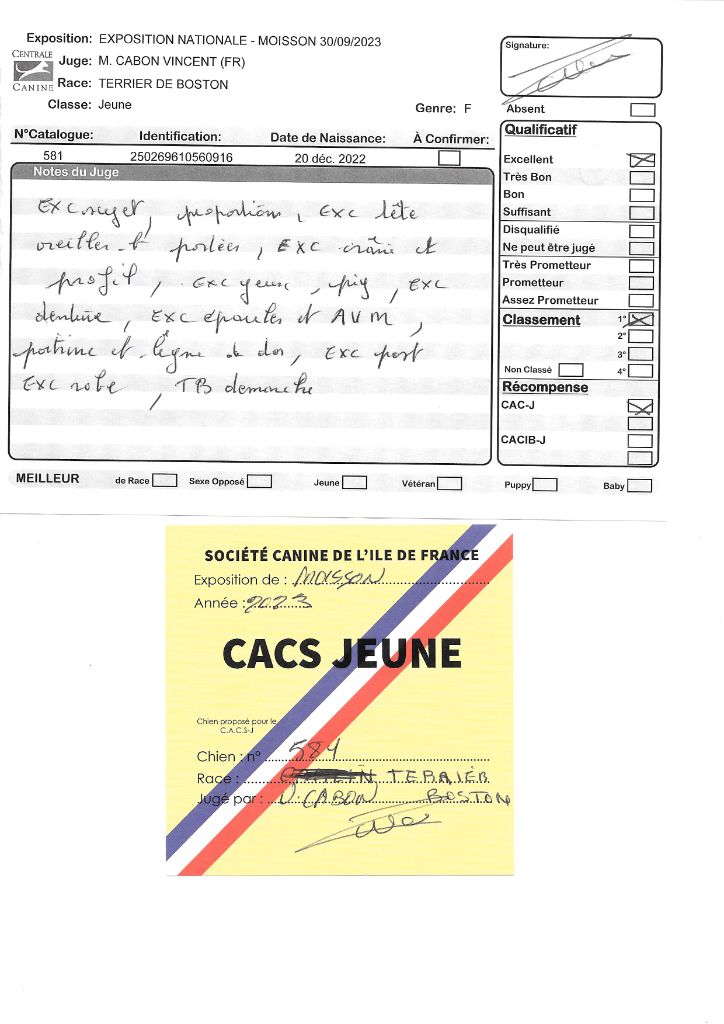 Exposition: EXPOSITION NATIONALE - MOISSON 30/09/2023
CENTRALE CANINE
Juge: M. CABON VINCENT (FR)
Race: TERRIER DE BOSTON
Classe: Jeune
Genre: F
N°Catalogue: Identification: Date de Naissance: À Confirmer:
581 250269610560916 20 déc. 2022
Notes du Juge
Exc sujet, proportions, Exc tête
oreilles bt portées, Exc crâne et
profil, exc yeux, pig, exc
denture, Exc épaules et AVM,
poitrine et ligne de dos, Exc post
Exc robe, TB démarche
Signature:
Absent
Qualificatif
Excellent
Très Bon
Bon
Suffisant
Disqualifié
Ne peut être jugé
Très Prometteur
Prometteur
Assez Prometteur
Classement 1°
2°
3°
Non Classé 4°
Récompense
CAC-J
CACIB-J
MEILLEUR de Race Sexe Opposé Jeune Vétéran Puppy Baby
SOCIÉTÉ CANINE DE L'ILE DE FRANCE
Exposition de : MOISSON
Année : 2023
CACS JEUNE
Chien proposé pour le
C.A.C.S-J
Chien : n° 581
Race : TERRIER
Jugé par : V. CABON BOSTON